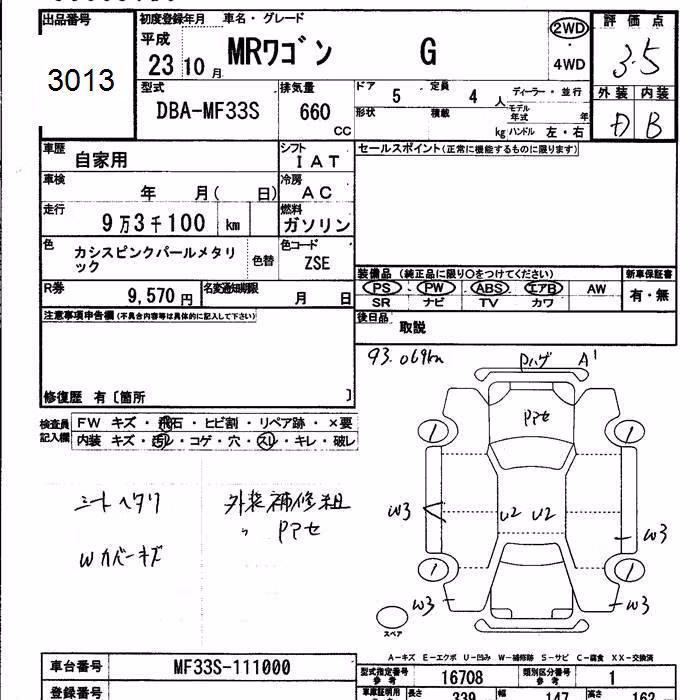 出品番号 初度登録年月 車名・グレード 評価点
平成 MRワゴン G 2WD 3.5
3013 23 10月 ・ 4WD
外装 内装
型式 排気量 ドア 5 定員 4人 ディーラー・並行 D B
DBA-MF33S 660 cc 形状 積載 kg モデル年式 年
ハンドル 左・右
車歴 自家用 シフト IAT セールスポイント(正常に機能するものに限ります)
車検 年 月( 日) 冷房 AC
走行 9万3千100 km 燃料 ガソリン
色 カシスピンクパールメタリック 色替 色コード ZSE
装備品 (純正品に限り○をつけてください) 新車保証書
R券 9,570円 名変通知期限 月 日 PS PW ABS エアB AW 有・無
SR ナビ TV カワ
注意事項申告欄(不具合内容等は具体的に記入して下さい) 後日品 取説
93.069km Pハゲ A1
修復歴 有〔箇所 〕
検査員記入欄 FW キズ・飛石・ヒビ割・リペア跡・×要
内装 キズ・汚レ・コゲ・穴・スレ・キレ・破レ
Pアセ
1 1
シートヘタリ 外装補修粗
〃 Pアセ
Wカバーキズ
W3 U2 U2 W3
1 1
W3 W3
スペア
A-キズ E-エクボ U-凹み W-補修跡 S-サビ C-腐食 XX-交換済
車台番号 MF33S-111000 型式指定番号 参考 16708 類別区分番号 参考 1
登録番号 車庫証明用 長さ 339 幅 147 高さ 162